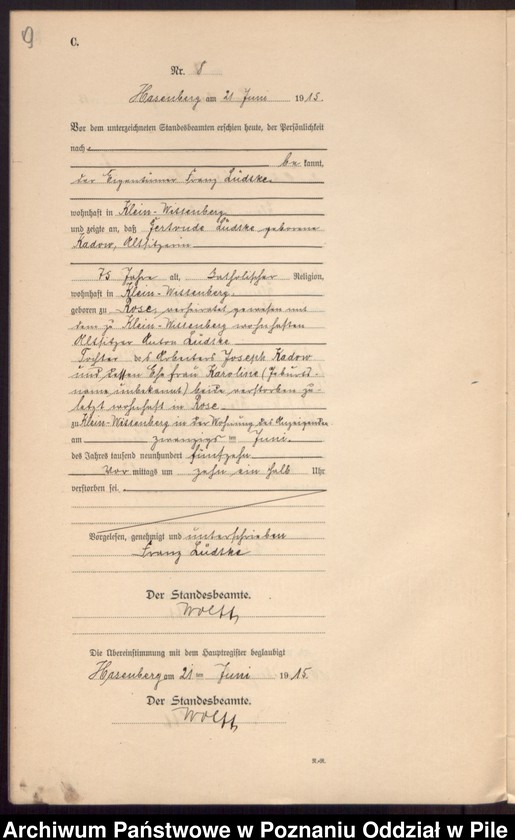 9
C.
Nr. 8
Hasenberg am 21 Juni 1915.
Vor dem unterzeichneten Standesbeamten erschien heute, der Persönlichkeit
nach
be kannt,
der Eigentümer Franz Lüdtke.
wohnhaft in Klein-Wissenberg
und zeigte an, daß Gertrude Lüdtke geborene
Kadow, Altsitzerin
75 Jahre alt, katholischer Religion,
wohnhaft in Klein-Wissenberg.
geboren zu Rose, verheiratet gewesen mit
dem zu Klein-Wissenberg wohnhaften
Altsitzer Anton Lüdtke
Tochter des Arbeiters Joseph Kadow
und dessen Ehefrau Karoline (Geburts-
name unbekannt) beide verstorben zu-
letzt wohnhaft in Rose.
zu Klein-Wissenberg in der Wohnung des Anzeigenden
am zwanzigsten Juni.
des Jahres tausend neunhundert fünfzehn
Vor mittags um zehn ein halb Uhr
verstorben sei.
Vorgelesen, genehmigt und unterschrieben
Franz Lüdtke
Der Standesbeamte.
Wolff
Die Übereinstimmung mit dem Hauptregister beglaubigt
Hasenberg am 21 ten Juni 1915.
Der Standesbeamte.
Wolff
Archiwum Państwowe w Poznaniu Oddział w Pile